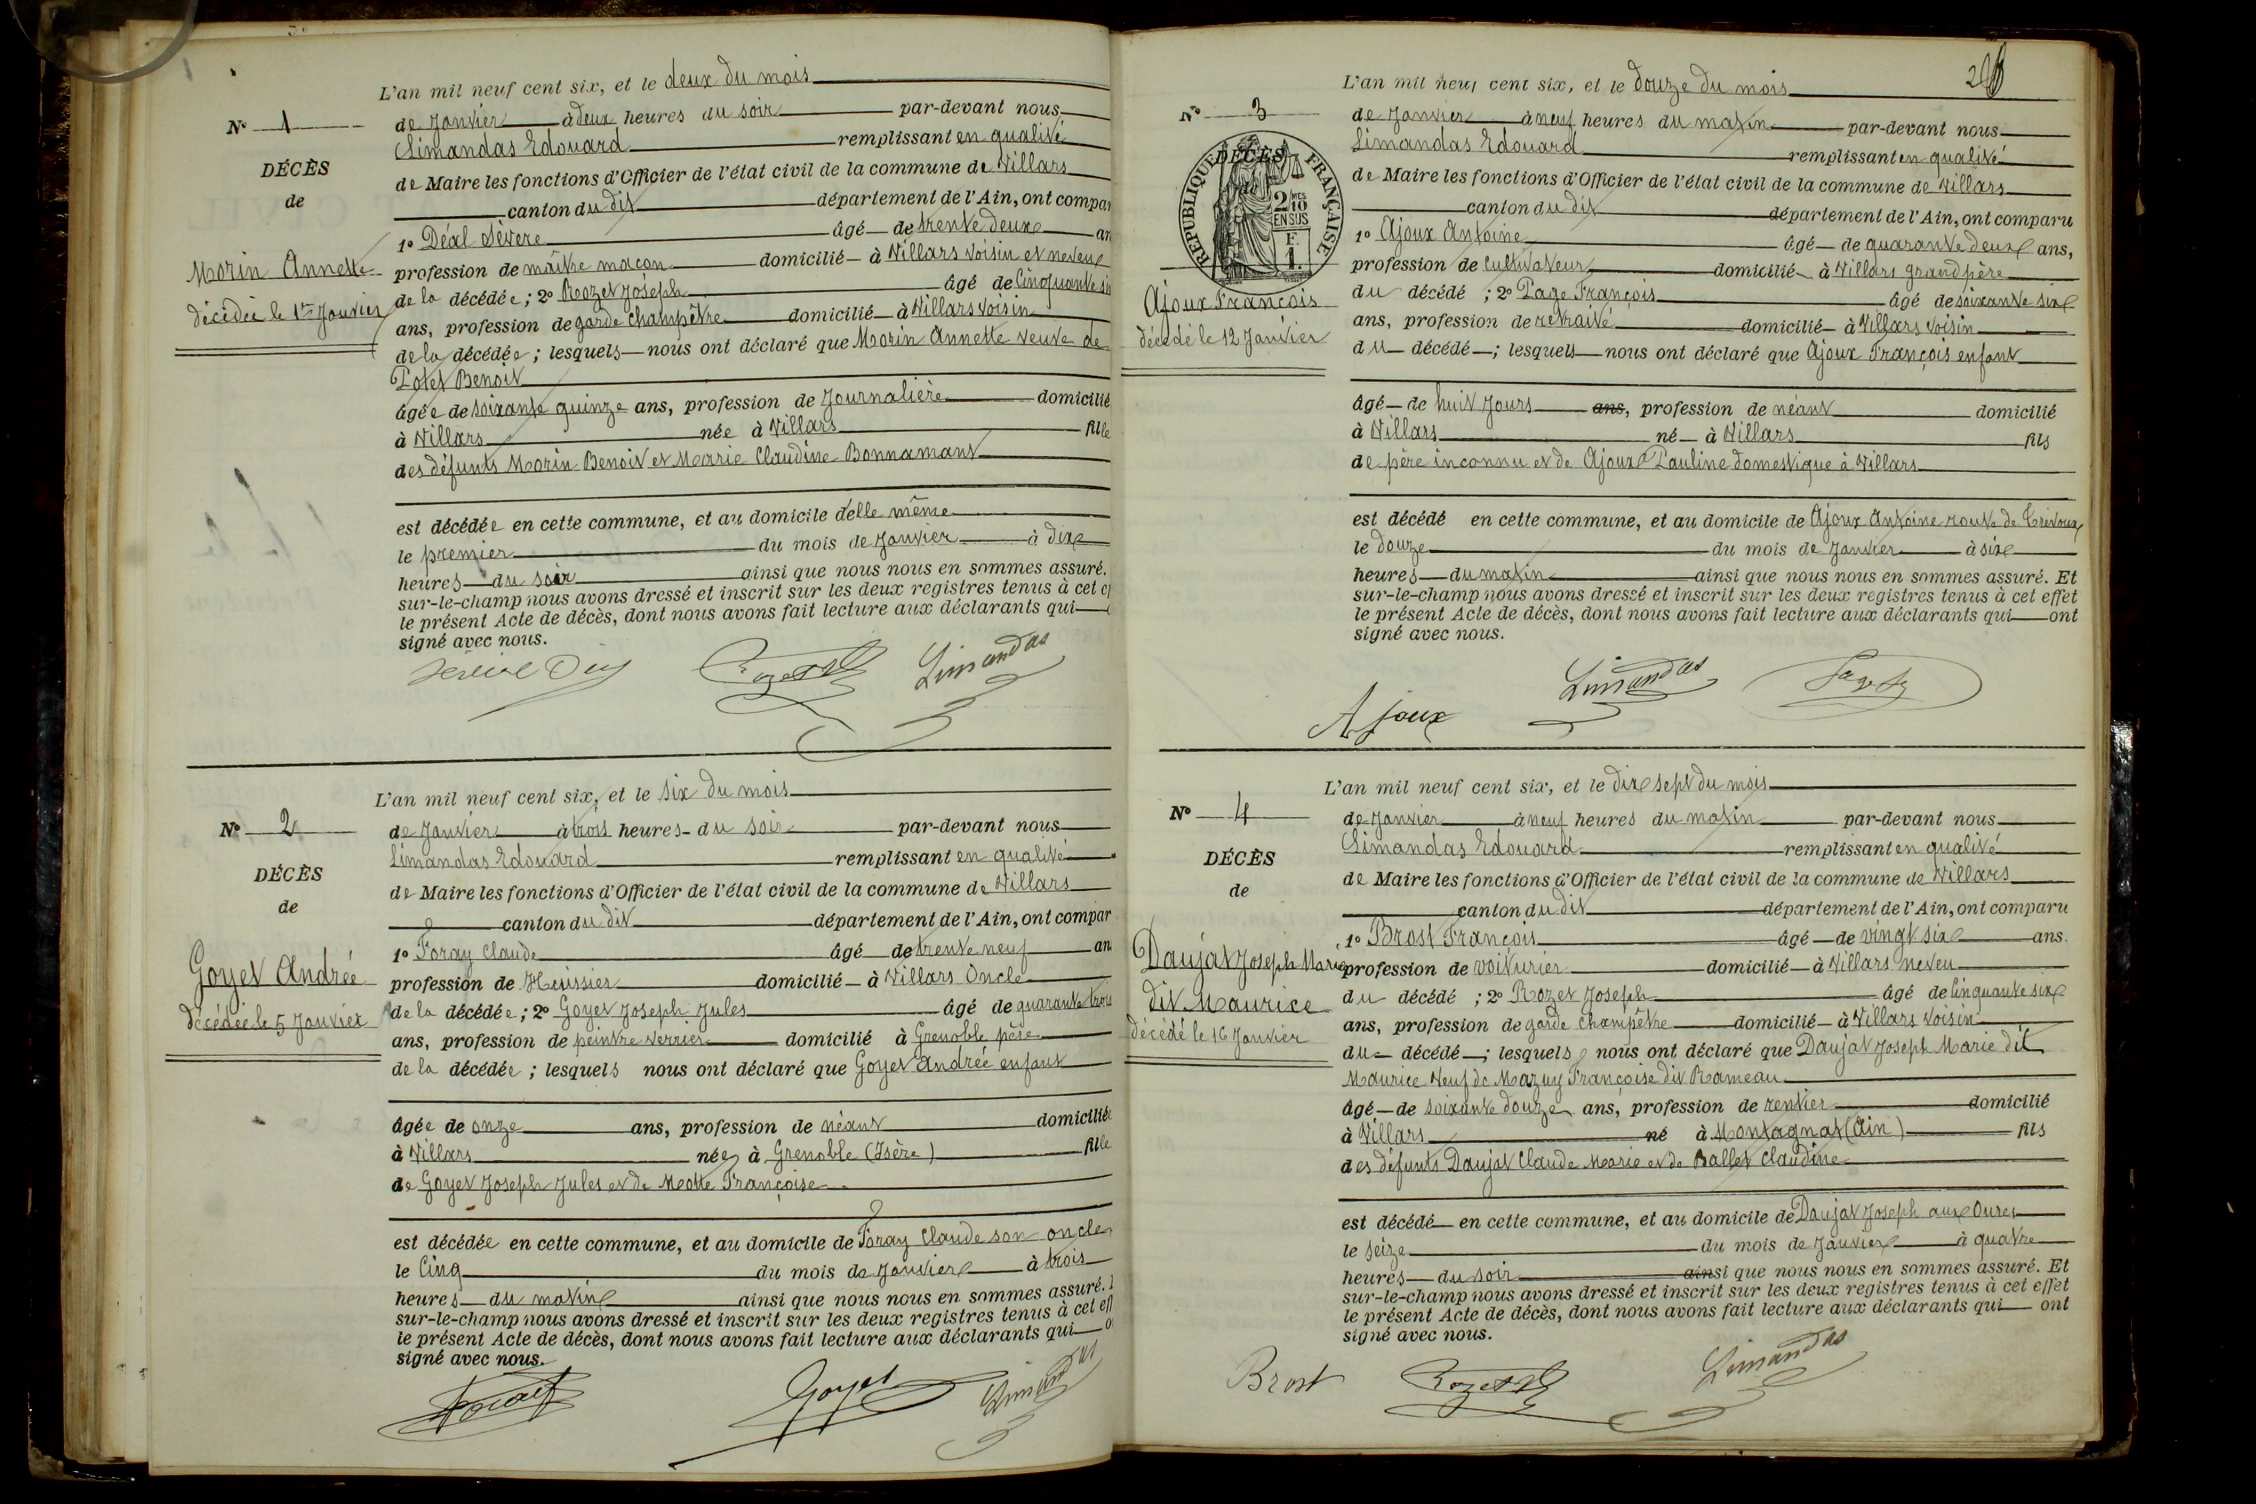 L'an mil neuf cent six, et le deux du mois
N° 1
de Janvier à deux heures du soir par-devant nous
Limandas Edouard remplissant en qualité
DÉCÈS
de Maire les fonctions d'Officier de l'état civil de la commune de Villars
de
canton du dit département de l'Ain, ont compar
1° Déal Sévère âgé de trente deux an
Morin Annette
profession de maître maçon domicilié à Villars voisin et neveu
décédée le 1er Janvier
de la décédée ; 2° Rozet Joseph âgé de Cinquante si
ans, profession de garde champêtre domicilié à Villars voisin
de la décédée ; lesquels nous ont déclaré que Morin Annette veuve de
Potet Benoit
âgée de soixante quinze ans, profession de Journalière domicilié
à Villars née à Villars fille
des défunts Morin Benoit et Marie Claudine Bonnamant
est décédée en cette commune, et au domicile d'elle même
le premier du mois de Janvier à dix
heures du soir ainsi que nous nous en sommes assuré.
sur-le-champ nous avons dressé et inscrit sur les deux registres tenus à cet e
le présent Acte de décès, dont nous avons fait lecture aux déclarants qui
signé avec nous.
Rozet Limandas
L'an mil neuf cent six, et le six du mois
N° 2
de Janvier à trois heures du soir par-devant nous
Limandas Edouard remplissant en qualité
DÉCÈS
de Maire les fonctions d'Officier de l'état civil de la commune de Villars
de
canton du dit département de l'Ain, ont compar
1° Foray Claude âgé de trente neuf an
Goyet Andrée
profession de Huissier domicilié à Villars Oncle
décédée le 5 Janvier
de la décédée ; 2° Goyet Joseph Jules âgé de quarante trois
ans, profession de peintre verrier domicilié à Grenoble père
de la décédée ; lesquels nous ont déclaré que Goyet Andrée enfant
âgée de onze ans, profession de néant domicilié
à Villars née à Grenoble (Isère) fille
de Goyet Joseph Jules et de Motte Françoise
est décédée en cette commune, et au domicile de Foray Claude son oncle
le Cinq du mois de Janvier à trois
heures du matin ainsi que nous nous en sommes assuré.
sur-le-champ nous avons dressé et inscrit sur les deux registres tenus à cet eff
le présent Acte de décès, dont nous avons fait lecture aux déclarants qui o
signé avec nous.
Goyet Limandas
L'an mil neuf cent six, et le douze du mois
N° 3
de Janvier à neuf heures du matin par-devant nous
Limandas Edouard remplissant en qualité
DÉCÈS
RÉPUBLIQUE FRANÇAISE
2 10MES EN SUS
F. 1.
de Maire les fonctions d'Officier de l'état civil de la commune de Villars
canton du dit département de l'Ain, ont comparu
1° Ajoux Antoine âgé de quarante deux ans,
profession de Cultivateur domicilié à Villars grand père
Ajoux François
du décédé ; 2° Page François âgé de soixante six
décédé le 12 Janvier
ans, profession de retraité domicilié à Villars voisin
du décédé ; lesquels nous ont déclaré que Ajoux François enfant
âgé de huit jours ans, profession de néant domicilié
à Villars né à Villars fils
de père inconnu et de Ajoux Pauline domestique à Villars
est décédé en cette commune, et au domicile de Ajoux Antoine route de Trévoux
le douze du mois de Janvier à six
heures du matin ainsi que nous nous en sommes assuré. Et
sur-le-champ nous avons dressé et inscrit sur les deux registres tenus à cet effet
le présent Acte de décès, dont nous avons fait lecture aux déclarants qui ont
signé avec nous.
Ajoux Limandas
L'an mil neuf cent six, et le dix sept du mois
N° 4
de Janvier à neuf heures du matin par-devant nous
Limandas Edouard remplissant en qualité
DÉCÈS
de Maire les fonctions d'Officier de l'état civil de la commune de Villars
de
canton du dit département de l'Ain, ont comparu
1° Brost François âgé de vingt six ans.
Daujat Joseph Marie
profession de voiturier domicilié à Villars neveu
dit Maurice
du décédé ; 2° Rozet Joseph âgé de Cinquante six
décédé le 16 Janvier
ans, profession de garde champêtre domicilié à Villars voisin
du décédé ; lesquels nous ont déclaré que Daujat Joseph Marie dit
Maurice Veuf de Mazuy Françoise dit Rameau
âgé de soixante douze ans, profession de rentier domicilié
à Villars né à Montagnat (Ain) fils
des défunts Daujat Claude Marie et de Ballet Claudine
est décédé en cette commune, et au domicile de Daujat Joseph aux
le seize du mois de Janvier à quatre
heures du soir ainsi que nous nous en sommes assuré. Et
sur-le-champ nous avons dressé et inscrit sur les deux registres tenus à cet effet
le présent Acte de décès, dont nous avons fait lecture aux déclarants qui ont
signé avec nous.
Brost Rozet Limandas